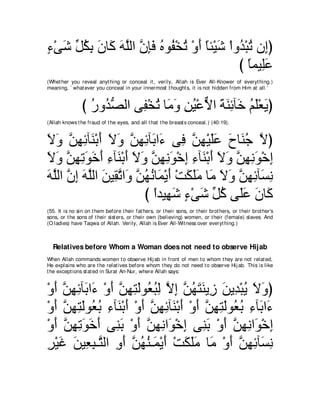 (إِن تُبْدُواْ شَيْئاً أَوْ تُخْفُوهُ فَإِنَّ اللَّهَ كَانَ بِكُلِّ شَىْءٍ
عَلِيماً )
(Whether you reveal anything or conceal it, verily, Allah is Ever All-Knower of everything.)
meaning, `whatever you conceal in your innermost thoughts, it is not hidden from Him at all.'
(يَعْلَمُ خَآئِنَةَ الاٌّعْيُنِ وَمَا تُخْفِى الصُّدُورُ )
(Allah knows the fraud of the eyes, and all that the breasts conceal.) (40:19).
(لاَّ جُنَاحَ عَلَيْهِنَّ فِى ءَابَآئِهِنَّ وَلاَ أَبْنَآئِهِنَّ وَلاَ
إِخْوَنِهِنَّ وَلاَ أَبْنَآءِ إِخْوَنِهِنَّ وَلاَ أَبْنَآءِ أَخَوَتِهِنَّ وَلاَ
نِسَآئِهِنَّ وَلاَ مَا مَلَكَتْ أَيْمَـنُهُنَّ وَاتَّقِينَ اللَّهَ إِنَّ اللَّهَ
كَانَ عَلَى كُلِّ شَىْءٍ شَهِيداً )
(55. It is no sin on them before their fathers, or their sons, or their brothers, or their brother's
sons, or the sons of their sisters, or their own (believing) women, or their (female) slaves. And
(O ladies) have Taqwa of Allah. Verily, Allah is Ever All-Witness over everything.)
Relatives before Whom a Woman does not need to observe Hijab
When Allah commands women to observe Hijab in front of men to whom they are not related,
He explains who are the relatives before whom they do not need to observe Hijab. This is like
the exceptions stated in Surat An-Nur, where Allah says:
(وَلاَ يُبْدِينَ زِينَتَهُنَّ إِلاَّ لِبُعُولَتِهِنَّ أَوْ ءَابَآئِهِنَّ أَوْ
ءَابَآءِ بُعُولَتِهِنَّ أَوْ أَبْنَآئِهِنَّ أَوْ أَبْنَآءِ بُعُولَتِهِنَّ أَوْ
إِخْوَانِهِنَّ أَوْ بَنِى إِخْوَانِهِنَّ أَوْ بَنِى أَخَوَتِهِنَّ أَوْ
نِسَآئِهِنَّ أَوْ مَا مَلَكَتْ أَيْمَـنُهُنَّ أَوِ التَّـبِعِينَ غَيْرِ